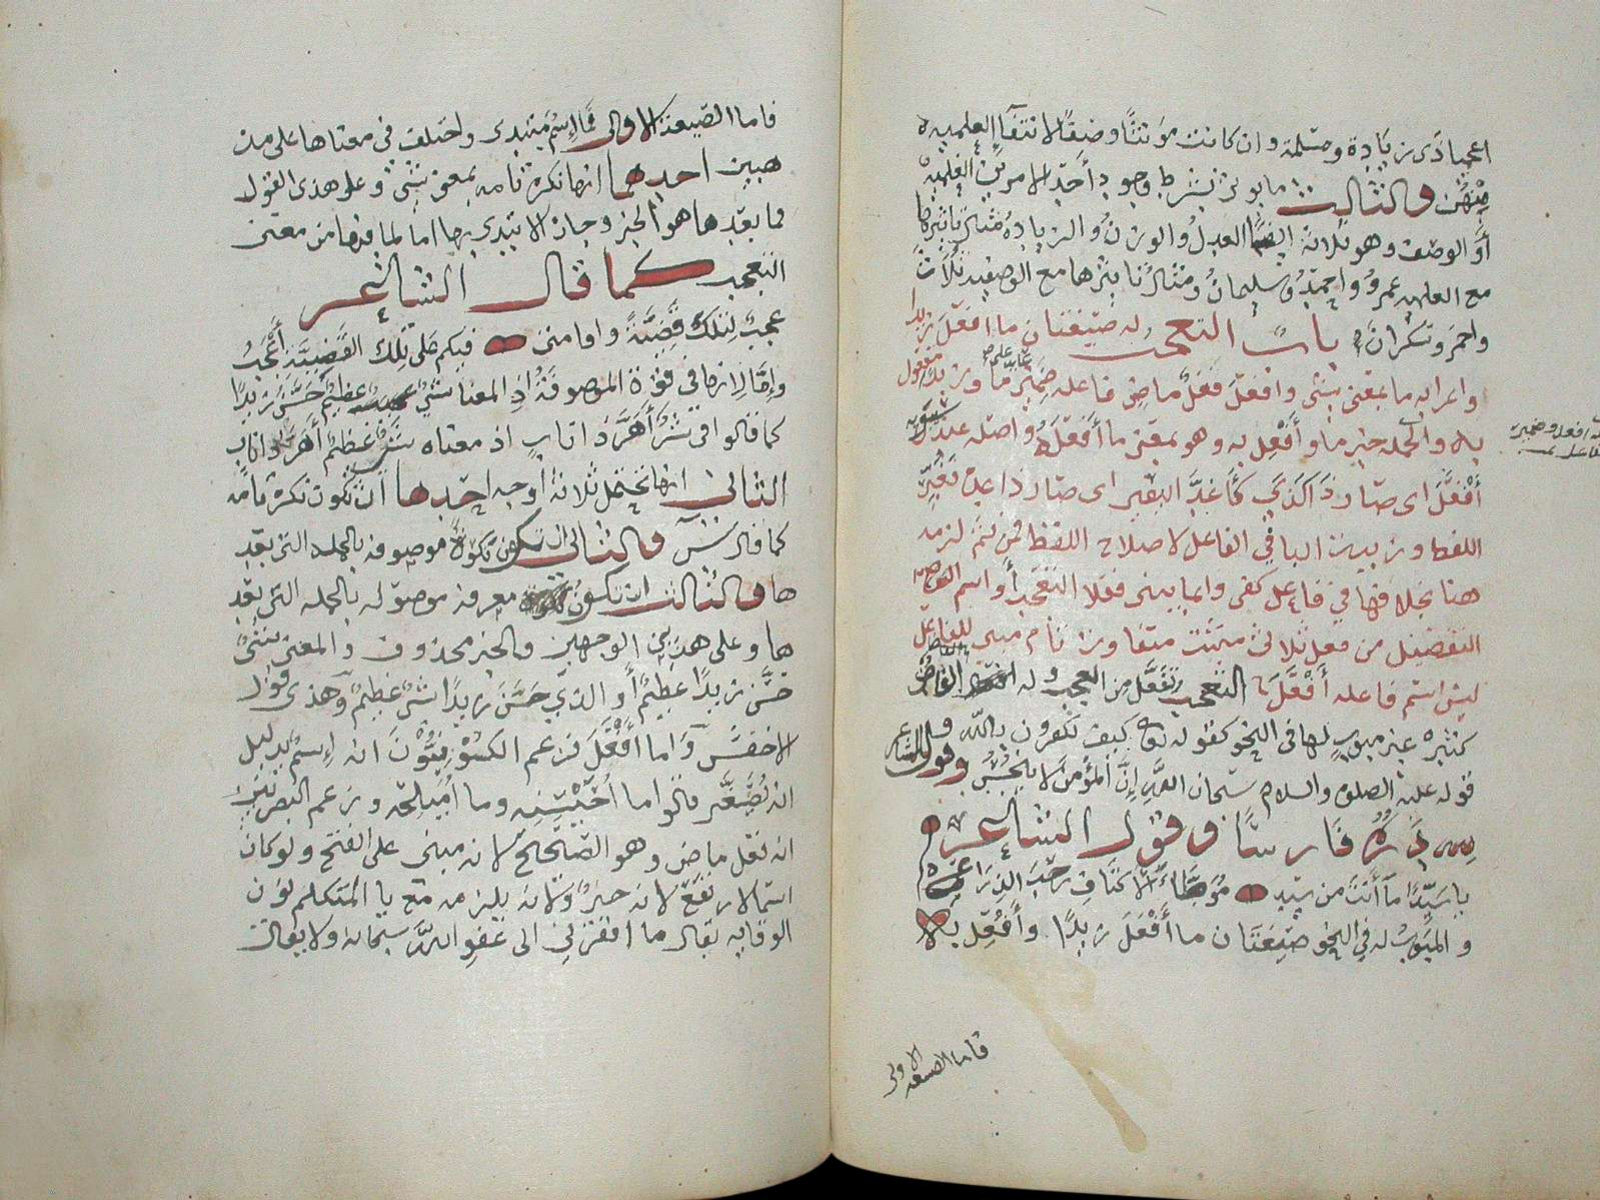 اعجميا ذى زيادة ومسلمة وان كانت مؤنثا وصفا لا انتفاء العلمية
منهن والثالث ما يوثر بشرط وجود أحد الامرين العلمية
أو الوصف وهو ثلاثة ايضا العدل والوزن والزيادة مثال تأثيرها
مع العلمية عمرو واحمد وسليمان ومثال تأثيرها مع الوصفية ثلاث
واحمر وسكران باب التعجب له صيغتان ما افعل زيدا
واعرابه ما بمعنى شئ وافعل فعل ماض فاعله ضمير ما وزيدا مفعول
به والجمله خبر ما وأفعل به وهو بمعنى ما أفعله واصله عند سيبويه
أفعل اى صار ذا كذا كأغد البعير اى صار ذا غدة فغير
اللفظ وزيدت البا في الفاعل لاصلاح اللفظ فمن ثم لزمه
هنا بخلافها في فاعل كفى وانما يبنى فعلا التعجب أو اسم
التفضيل من فعل ثلاثى مثبت متفاوت تام مبنى للفاعل
ليس اسم فاعله أفعل التعجب تفعل من العجب وله الفاظ
كثيره غير مبوب لها في النحو كقوله تع كيف تكفرون بالله و
قوله عليه الصلوة والسلام سبحان الله إن المؤمن لا ينجس وقولهم
لله دره فارسا وقول الشاعر
يا سيدا ما أنت من سيد موطأ الاكناف رحب الذراع
والمبوب له في النحو صيغتان ما أفعل زيدا وأفعل به
فاما الصيغة الاولى
فاما الصيغة الاولى فما اسم مبتدى واختلف في معناها على مذ
هبين احدهما انها نكرة تامه بمعنى شئ وعلى هذى القول
فما بعدها هو الخبر وجاز الابتدى بها اما لما فيها من معنى
التعجب كما قال الشاعر
عجب لتلك قضية واقامتى فيكم على تلك القضية أعجب
وإما لانها في قوة الموصوفة إذ المعنا شئ عظيم حسن زيدا
كما قالوا في شر أهر ذا ناب اذ معناه شر عظيم أهر ذا ناب
الثانى انها تحتمل ثلاثة أوجه احدها أن تكون نكرة تامه
كما قال س والثانى ان تكون نكرة موصوفه بالجمله التى بعد
ها والثالث ان تكون معرفة موصوله بالجمله التى بعد
ها وعلى هذين الوجهين فالخبر محذوف والمعنى شئ
حسن زيدا عظيم أو الذي حسن زيدا شئ عظيم وهذى قول
الاخفش وأما أفعل فزعم الكوفيون انه إسم بدليل
انه يصغر قالوا ما أحيسنه وما أميلحه وزعم البصريين
انه فعل ماض وهو الصحيح لانه مبنى على الفتح ولو كان
اسما لارتفع لانه خبر ولانه يلزمه مع يا المتكلم نون
الوقايه يقال ما افقرنى الى عفو الله سبحانه ولا يقال